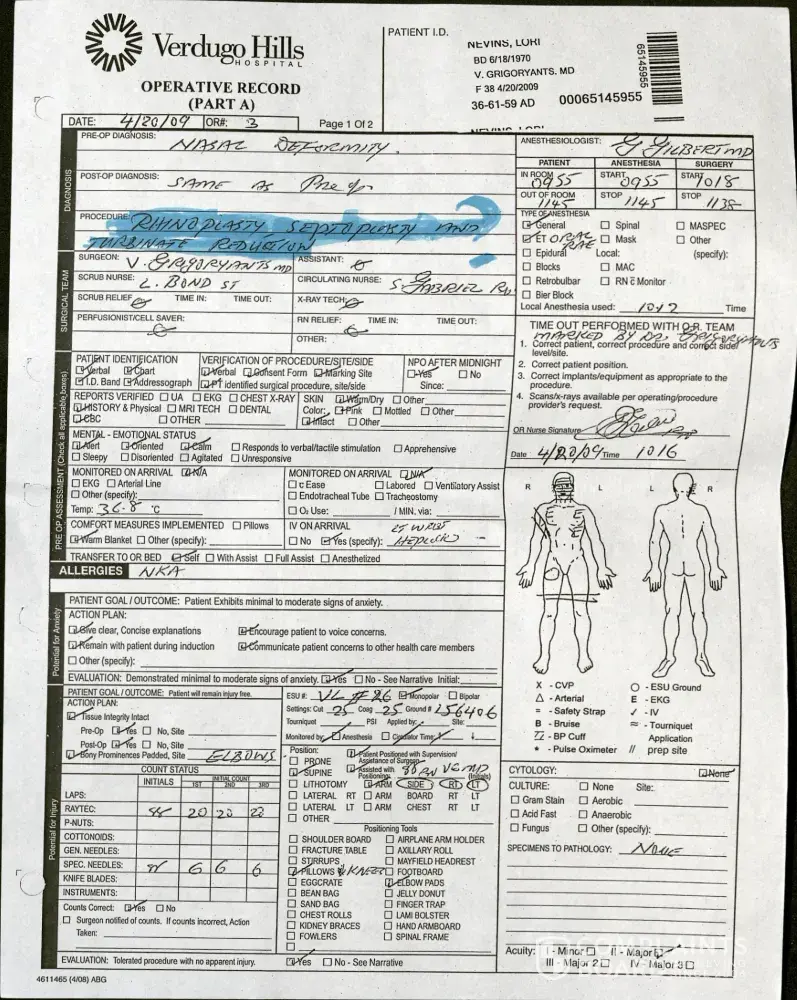 Verdugo Hills
HOSPITAL
OPERATIVE RECORD
(PART A)
PATIENT I.D.
NEVINS, LORI
BD 6/18/1970
V. GRIGORYANTS. MD
F 38 4/20/2009
36-61-59 AD 00065145955
65145955
NEVINS, LORI
DATE: 4/20/09 OR#: 3 Page 1 Of 2
DIAGNOSIS
PRE-OP DIAGNOSIS: NASAL DEFORMITY.
POST-OP DIAGNOSIS: SAME AS Pre op
PROCEDURE: RHINOPLASTY SEPTOPLASTY AND
TURBINATE REDUCTION
SURGICAL TEAM
SURGEON: V. GRIGORYANTS MD ASSISTANT:
SCRUB NURSE: L. BOND ST CIRCULATING NURSE: S. GABRIEL RN.
SCRUB RELIEF: TIME IN: TIME OUT: X-RAY TECH:
PERFUSIONIST/CELL SAVER: RN RELIEF: TIME IN: TIME OUT:
OTHER:
ANESTHESIOLOGIST: G GILBERT MD
PATIENT ANESTHESIA SURGERY
IN ROOM 0955 START 0955 START 1018
OUT OF ROOM 1145 STOP 1145 STOP 1138
TYPE OF ANESTHESIA
☑ General ☐ Spinal ☐ MASPEC
☑ ET ORAL RAE ☐ Mask ☐ Other
☐ Epidural Local: (specify):
☐ Blocks ☐ MAC
☐ Retrobulbar ☐ RN c Monitor
☐ Bier Block
Local Anesthesia used: 1012 Time
TIME OUT PERFORMED WITH O.R. TEAM
MARKED BY DR. GRIGORYANTS
1. Correct patient, correct procedure and correct side/
level/site.
2. Correct patient position.
3. Correct implants/equipment as appropriate to the
procedure.
4. Scans/x-rays available per operating/procedure
provider's request.
OR Nurse Signature
Date 4/20/09 Time 1016
PRE OP ASSESSMENT (Check all applicable boxes)
PATIENT IDENTIFICATION VERIFICATION OF PROCEDURE/SITE/SIDE NPO AFTER MIDNIGHT
☑ Verbal ☑ Chart ☑ Verbal ☑ Consent Form ☑ Marking Site ☑ Yes ☐ No
☑ I.D. Band ☑ Addressograph ☑ PT identified surgical procedure, site/side Since:
REPORTS VERIFIED ☐ UA ☐ EKG ☐ CHEST X-RAY SKIN ☑ Warm/Dry ☐ Other
☑ HISTORY & Physical ☐ MRI TECH ☐ DENTAL Color: ☑ Pink ☐ Mottled ☐ Other
☑ CBC ☐ OTHER ☑ Intact ☐ Other
MENTAL - EMOTIONAL STATUS
☑ Alert ☑ Oriented ☑ Calm ☐ Responds to verbal/tactile stimulation ☐ Apprehensive
☐ Sleepy ☐ Disoriented ☐ Agitated ☐ Unresponsive
MONITORED ON ARRIVAL ☑ N/A MONITORED ON ARRIVAL ☑ N/A
☐ EKG ☐ Arterial Line ☐ c Ease ☐ Labored ☐ Ventilatory Assist
☐ Other (specify): ☐ Endotracheal Tube ☐ Tracheostomy
Temp: 36.8 °C ☐ O₂ Use: / MIN, via:
COMFORT MEASURES IMPLEMENTED ☐ Pillows IV ON ARRIVAL LT WRIST
☑ Warm Blanket ☐ Other (specify): ☐ No ☑ Yes (specify): HEPLOCK
TRANSFER TO OR BED ☑ Self ☐ With Assist ☐ Full Assist ☐ Anesthetized
ALLERGIES NKA
Potential for Anxiety
PATIENT GOAL / OUTCOME: Patient Exhibits minimal to moderate signs of anxiety.
ACTION PLAN:
☑ Give clear, Concise explanations ☑ Encourage patient to voice concerns.
☑ Remain with patient during induction ☑ Communicate patient concerns to other health care members
☐ Other (specify):
EVALUATION: Demonstrated minimal to moderate signs of anxiety. ☑ Yes ☐ No - See Narrative Initial:
Potential for Injury
PATIENT GOAL / OUTCOME: Patient will remain injury free.
ACTION PLAN:
☑ Tissue Integrity Intact
Pre-Op ☑ Yes ☐ No, Site
Post-Op ☑ Yes ☐ No, Site
☑ Bony Prominences Padded, Site ELBOWS
COUNT STATUS
INITIALS INITIAL COUNT
1ST 2ND 3RD
LAPS:
RAYTEC: 20 20 20
P-NUTS:
COTTONOIDS:
GEN. NEEDLES:
SPEC. NEEDLES: 6 6 6
KNIFE BLADES:
INSTRUMENTS:
Counts Correct: ☑ Yes ☐ No
☐ Surgeon notified of counts. If counts incorrect, Action
Taken:
EVALUATION: Tolerated procedure with no apparent injury. ☑ Yes ☐ No - See Narrative
ESU #: VL #26 ☑ Monopolar ☐ Bipolar
Settings: Cut 25 Coag 25 Ground # 256406
Tourniquet PSI Applied by: Site:
Monitored by: ☐ Anesthesia ☐ Circulator Time: ↑ ↓
Position: ☑ Patient Positioned with Supervision/
Assistance of Surgeon
☐ PRONE ☑ Assisted with
☑ SUPINE Positioning: VG MD (Initials)
☐ LITHOTOMY ☑ ARM SIDE RT LT
☐ LATERAL RT ☐ ARM BOARD RT LT
☐ LATERAL LT ☐ ARM CHEST RT LT
☐ OTHER
Positioning Tools
☐ SHOULDER BOARD ☐ AIRPLANE ARM HOLDER
☐ FRACTURE TABLE ☐ AXILLARY ROLL
☐ STIRRUPS ☐ MAYFIELD HEADREST
☑ PILLOWS KNEES ☐ FOOTBOARD
☐ EGGCRATE ☑ ELBOW PADS
☐ BEAN BAG ☐ JELLY DONUT
☐ SAND BAG ☐ FINGER TRAP
☐ CHEST ROLLS ☐ LAMI BOLSTER
☐ KIDNEY BRACES ☐ HAND ARMBOARD
☐ FOWLERS ☐ SPINAL FRAME
☐
R L L R
X - CVP ○ - ESU Ground
△ - Arterial E - EKG
= - Safety Strap ✓ - IV
B - Bruise ≈ - Tourniquet
- BP Cuff Application
* - Pulse Oximeter // prep site
CYTOLOGY: ☑ None
CULTURE: ☐ None Site:
☐ Gram Stain ☐ Aerobic
☐ Acid Fast ☐ Anaerobic
☐ Fungus ☐ Other (specify):
SPECIMENS TO PATHOLOGY: NONE
Acuity: I - Minor ☐ II - Major ☑
III - Major 2 ☐ IV - Major 3 ☐
4611465 (4/08) ABG